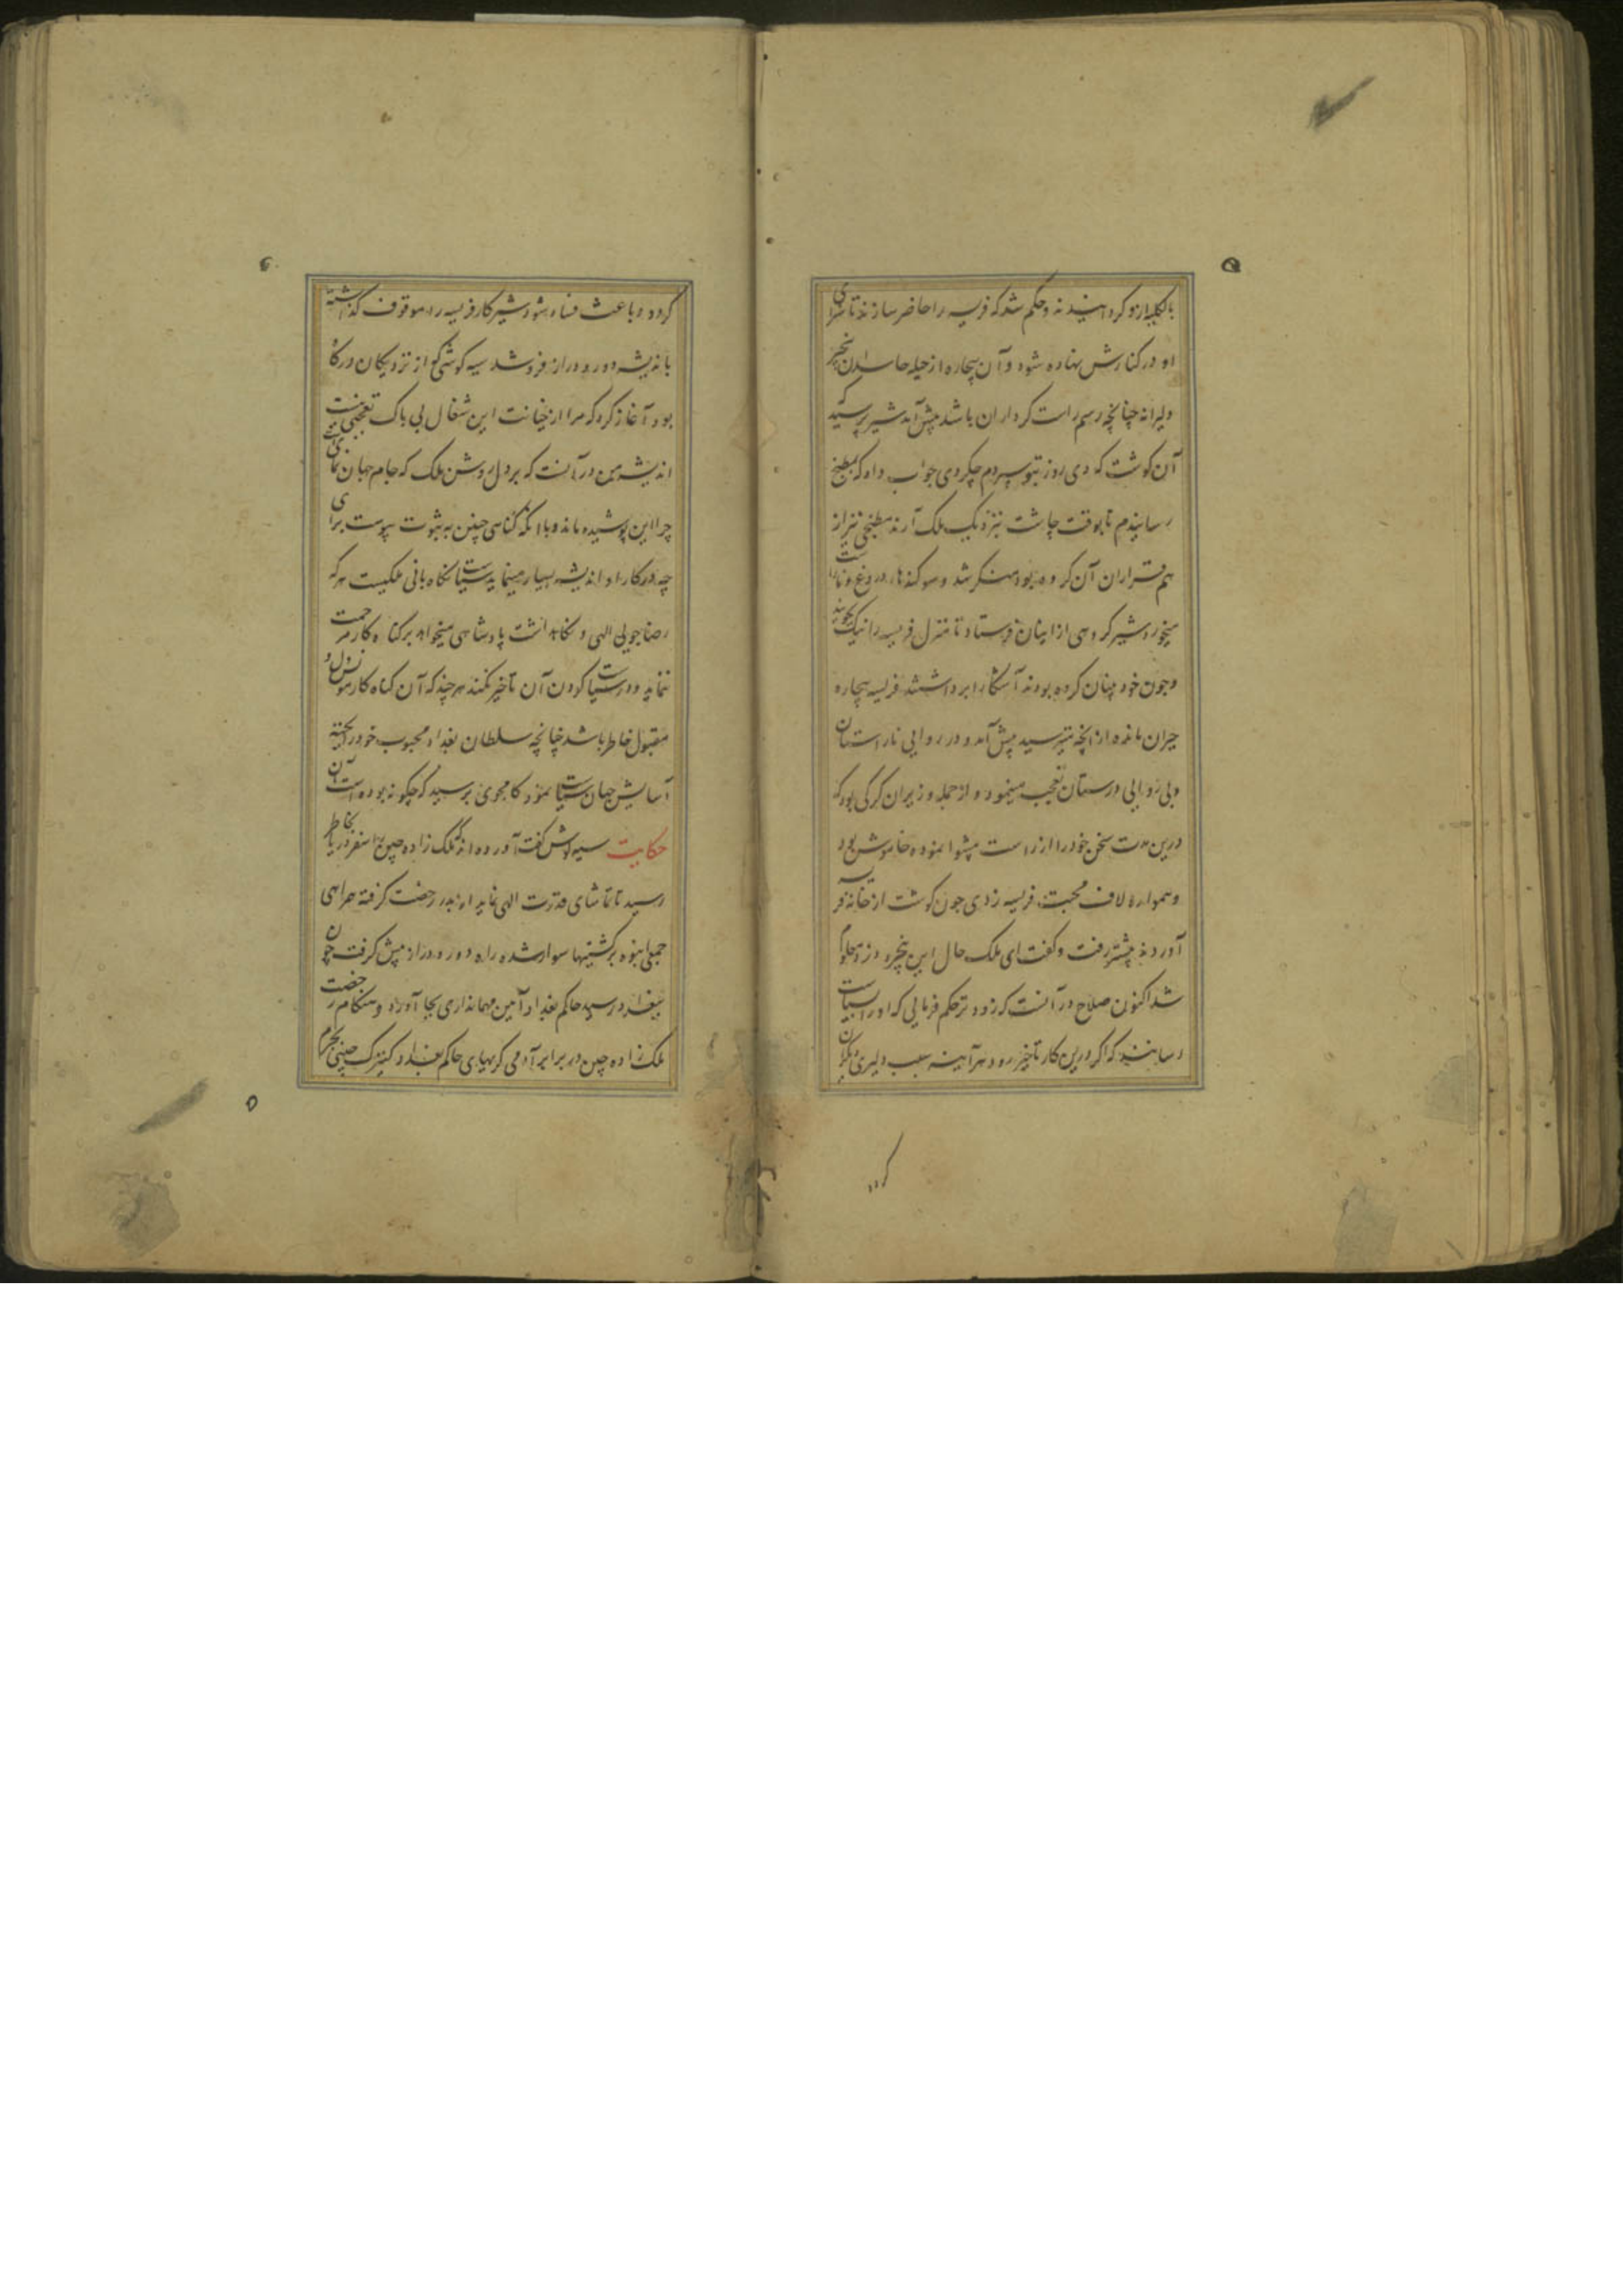 بالکلیه ازو کردانیدند و حکم شد که فریسه را حاضر سازند تا سزای
او در کنارش نهاده شود و آن بیچاره از حیله حاسدان بیخبر
دلیرانه چنانچه رسم راست کرداران باشد پیش آمد شیر پرسید که
آن کوشت که دی روز بتو سپردم چکردی جواب داد که بمطبخ
رسانیدم تا بوقت چاشت بنزدیک ملک آرند مطبخی نیز از
هم قراران آن کروه بود منکر شد و سوکندهای دروغ و ناراست
میخورد شیر کروهی از امینان فرستاد تا منزل فریسه را نیک بجویند
و چون خود پنهان کرده بودند آشکارا برداشتند فریسه بیچاره
حیران مانده از آنچه میترسید پیش آمد و در روایی ناراستان
و بی روایی درستان تعجب مینمود و از جمله وزیران کرکی بود که
درین مدت سخن خود را از راست پیشوا نموده خاموش بود
و همواره لاف محبت فریسه زدی چون کوشت از خانه فریسه
آوردند پیشتر رفت و کفت ای ملک حال این بیخرد زود معلوم
شد اکنون صلاح در آنست که زودتر حکم فرمایی که او را بسیاست
رسانند که اکر درین کار تأخیر رود هرآینه سبب دلیری دیکران
کردد
۵
کردد و باعث فساد شود شیر کار فریسه را موقوف کذاشته
باندیشه دور و دراز فرو شد سیه کوشی که از نزدیکان درکاه
بود آغاز کرد که مرا از خیانت این شغال بی باک تعجبی نیست
اندیشه من در آنست که بر دل روشن ملک که جام جهان نمای است
چرا این پوشیده ماند و با آنکه کناهی چنین به ثبوت پیوست برای
چه در کار او اندیشه بسیار مینماید سیاست نکاه بانی ملکیست هر که
رضا جویی الهی و نکاهداشت پادشاهی میخواهد بر کناه کار مرحمت
ننماید و در سیاست کردن آن تأخیر نکند هرچند که آن کناه کار مونس و
مقبول خاطر باشد چنانچه سلطان بغداد محبوب خود را بجهة
آسایش جهان سیاست نمود کامجوی پرسید که چکونه بوده است آن
حکایت سیه کوش کفت آورده اند که ملک زاده چین را سفر دریا بخاطر
رسید تا تماشای قدرت الهی نماید از پدر رخصت کرفته همراهی
جمعی انبوه بر کشتیها سوار شده راه دور و دراز پیش کرفت چون
ببغداد رسید حاکم بغداد آیین مهمانداری بجا آورد و هنکام رخصت
ملک زاده چین در برابر آدمی کریهای حاکم بغداد کنیزک چینی
۶
۵